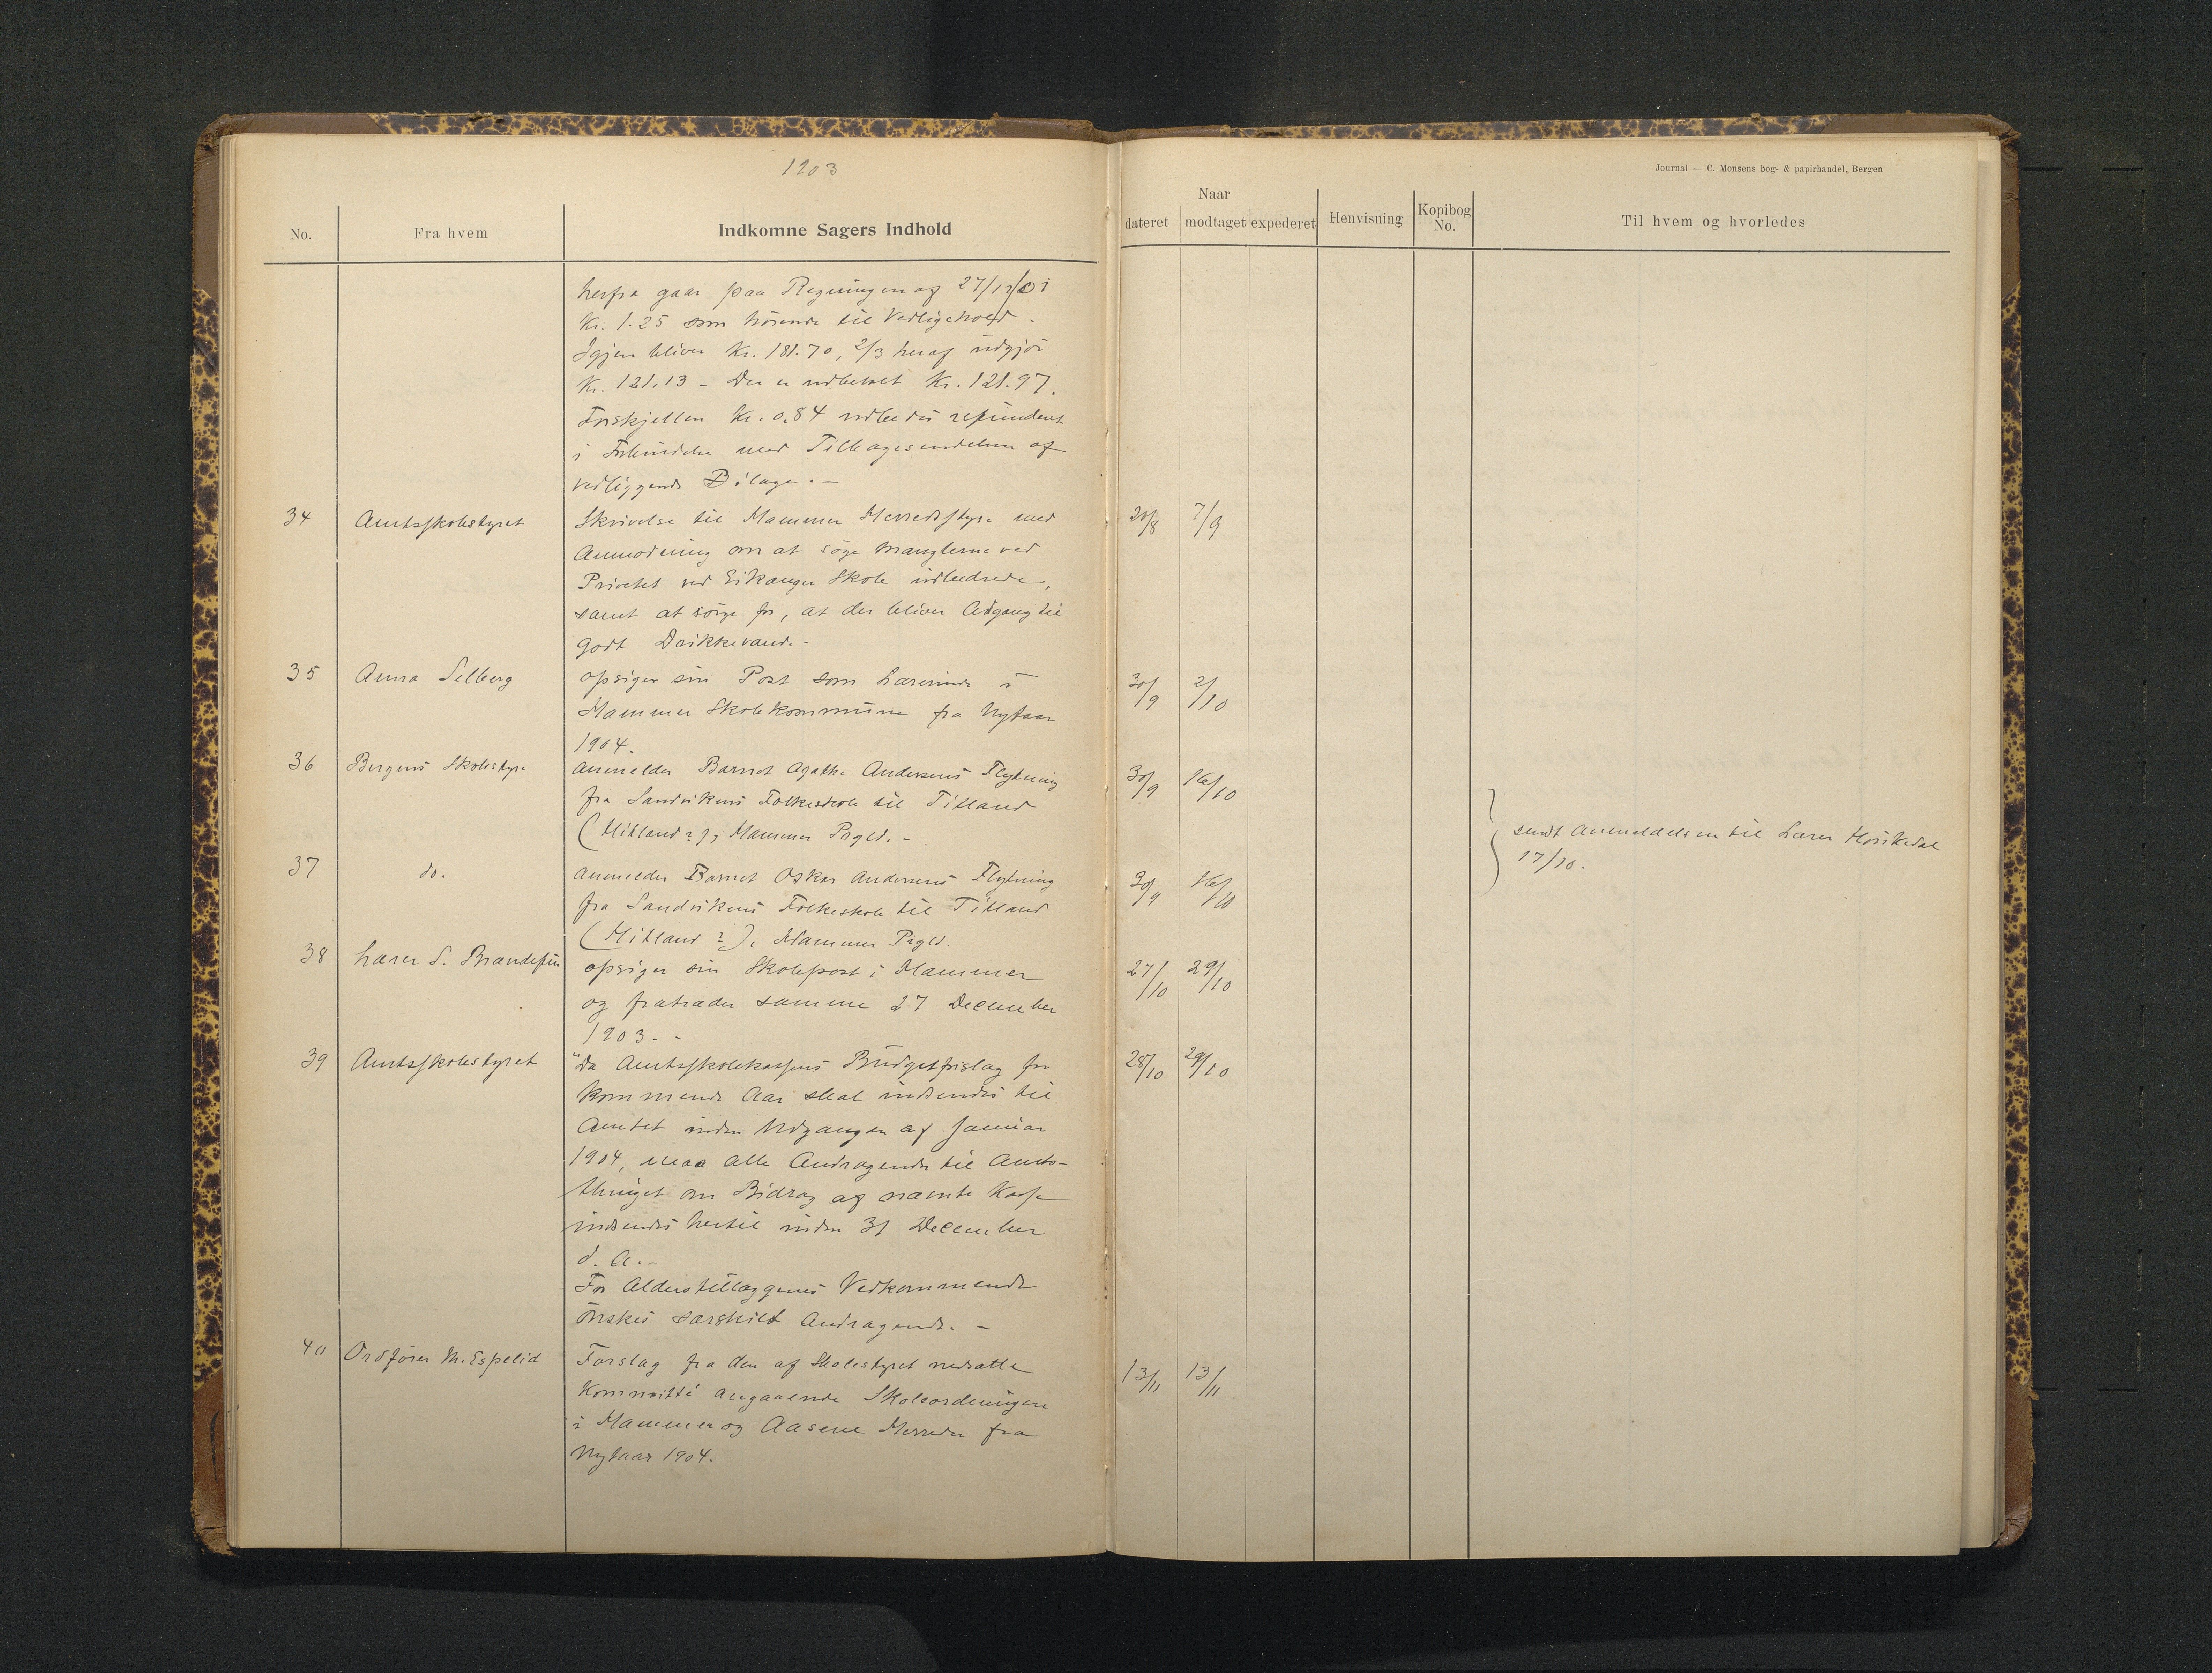 1903
Journal — C. Monsens bog- & papirhandel, Bergen
No.
Fra hvem
Indkomne Sagers Indhold
Naar
dateret
modtaget
expederet
Henvisning
Kopibog
No.
Til hvem og hvorledes
herfra gaar paa Regningen af 27/12/01
Kr. 1.25 som hörende til Vedligehold.
Igjen bliver Kr. 181.70, 2/3 heraf udgjör
Kr. 121.13 - Der er udbetalt Kr. 121.97.
Forskjellen Kr. 0.84 udbedes refunderet
i Forbindelse med Tilbagesendelsen af
vedliggende Bilage. —
34 Amtsskolestyret Skrivelse til Hammer Herredsstyre med 20/8 7/9
Anmodning om at söge Manglerne ved
Privetet ved Eikanger Skole udbedrede,
samt at sörge for, at der bliver Adgang til
godt Drikkevand. -
35 Anna Selberg opsiger sin Post som Lærerinde i 30/9 2/10
Hammer Skolekommune fra Nytaar
1904.
36 Bergens Skolestyre anmelder Barnet Agathe Andersens Flytning 30/9 16/10
fra Sandvikens Folkeskole til Tilland
(Mitland?), Hammer Prgld. -
37 do. anmelder Barnet Oskar Andersens Flytning 30/9 16/10
fra Sandvikens Folkeskole til Tilland
(Mitland?), Hammer Prgld.
sendt Anmeldelsen til Lærer
17/10.
38 Lærer S. opsiger sin Skolepost i Hammer 27/10 29/10
og fratræder samme 27 December
1903. -
39 Amtsskolestyret "Da Amtsskolekassens Budgetforslag for 28/10 29/10
kommende Aar skal indsendes til
Amtet inden Udgangen af Januar
1904, maa alle Andragender til Amts-
thinget om Bidrag af nævnte Kasse
indsendes hertil inden 31 December
d. A. -
For Alderstillæggenes Vedkommende
önskes særskilt Andragende. —
40 Ordförer M. Espelid Forslag fra den af Skolestyret nedsatte 13/11 13/11
Kommitté angaaende Skoleordningen
i Hammer og Aasene Herreder fra
Nytaar 1904.